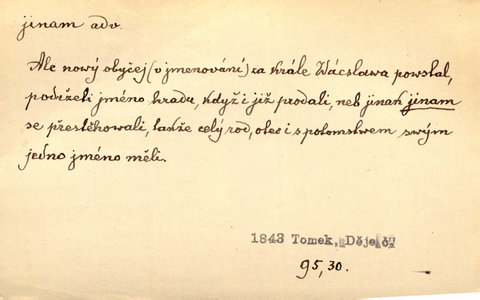 jinam adv.
Ale nový obyčej (v jmenování) za krále Wácslawa powstal,
podrželi jméno hradu, když i již prodali, neb jinak jinam
se přestěhowali, takže celý rod, otec i s potomstwem swým
jedno jméno měli.
1843 Tomek, Děje č.
95, 30.